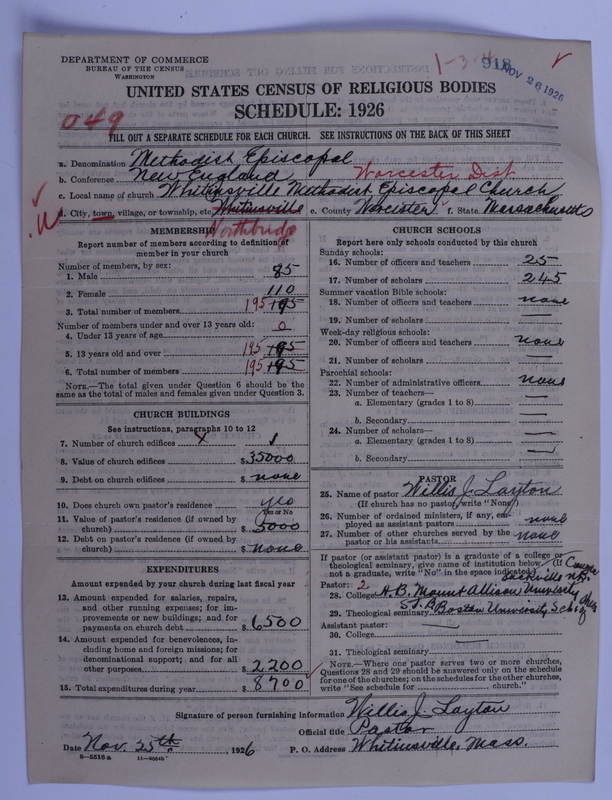 DEPARTMENT OF COMMERCE
BUREAU OF THE CENSUS
WASHINGTON
918
NOV 26 1926
UNITED STATES CENSUS OF RELIGIOUS BODIES
SCHEDULE: 1926
049
FILL OUT A SEPARATE SCHEDULE FOR EACH CHURCH. SEE INSTRUCTIONS ON THE BACK OF THIS SHEET
a. Denomination Methodist Episcopal
b. Conference New England Worcester Dist
c. Local name of church Whitinsville Methodist Episcopal Church
d. City, town, village, or township, etc. Whitinsville e. County Worcester f. State Massachusetts
Northbridge
MEMBERSHIP
Report number of members according to definition of
member in your church
Number of members, by sex:
1. Male 85
2. Female 110
3. Total number of members 195 195
Number of members under and over 13 years old:
4. Under 13 years of age 0
5. 13 years old and over 195 195
6. Total number of members 195 195
NOTE.—The total given under Question 6 should be the
same as the total of males and females given under Question 3.
CHURCH BUILDINGS
See instructions, paragraphs 10 to 12
7. Number of church edifices 1
8. Value of church edifices $35000
9. Debt on church edifices $ none
10. Does church own pastor's residence yes
Yes or No
11. Value of pastor's residence (if owned by
church) $5000
12. Debt on pastor's residence (if owned by
church) $ none
EXPENDITURES
Amount expended by your church during last fiscal year
13. Amount expended for salaries, repairs,
and other running expenses; for im-
provements or new buildings; and for
payments on church debt $6500
14. Amount expended for benevolences, in-
cluding home and foreign missions; for
denominational support; and for all
other purposes $2200
15. Total expenditures during year $8700
CHURCH SCHOOLS
Report here only schools conducted by this church
Sunday schools:
16. Number of officers and teachers 25
17. Number of scholars 245
Summer vacation Bible schools:
18. Number of officers and teachers none
19. Number of scholars —
Week-day religious schools:
20. Number of officers and teachers none
21. Number of scholars —
Parochial schools:
22. Number of administrative officers none
23. Number of teachers—
a. Elementary (grades 1 to 8) —
b. Secondary —
24. Number of scholars—
a. Elementary (grades 1 to 8) —
b. Secondary —
PASTOR
25. Name of pastor Willis J. Layton
(If church has no pastor, write "None")
26. Number of ordained ministers, if any, em-
ployed as assistant pastors none
27. Number of other churches served by the
pastor or his assistants none
If pastor (or assistant pastor) is a graduate of a college or
theological seminary, give name of institution below. (If
not a graduate, write "No" in the space indicated.)
Sackville N.B.
Pastor: 2
28. College A.B. Mount Allison University
29. Theological seminary S.T.B. Boston University School of
Assistant pastor:
30. College —
31. Theological seminary —
NOTE.—Where one pastor serves two or more churches,
Questions 28 and 29 should be answered only on the schedule
for one of the churches; on the schedules for the other churches,
write "See schedule for church."
Signature of person furnishing information Willis J. Layton
Official title Pastor
Date Nov. 25th, 1926 P. O. Address Whitinsville, Mass.
8—5518 a